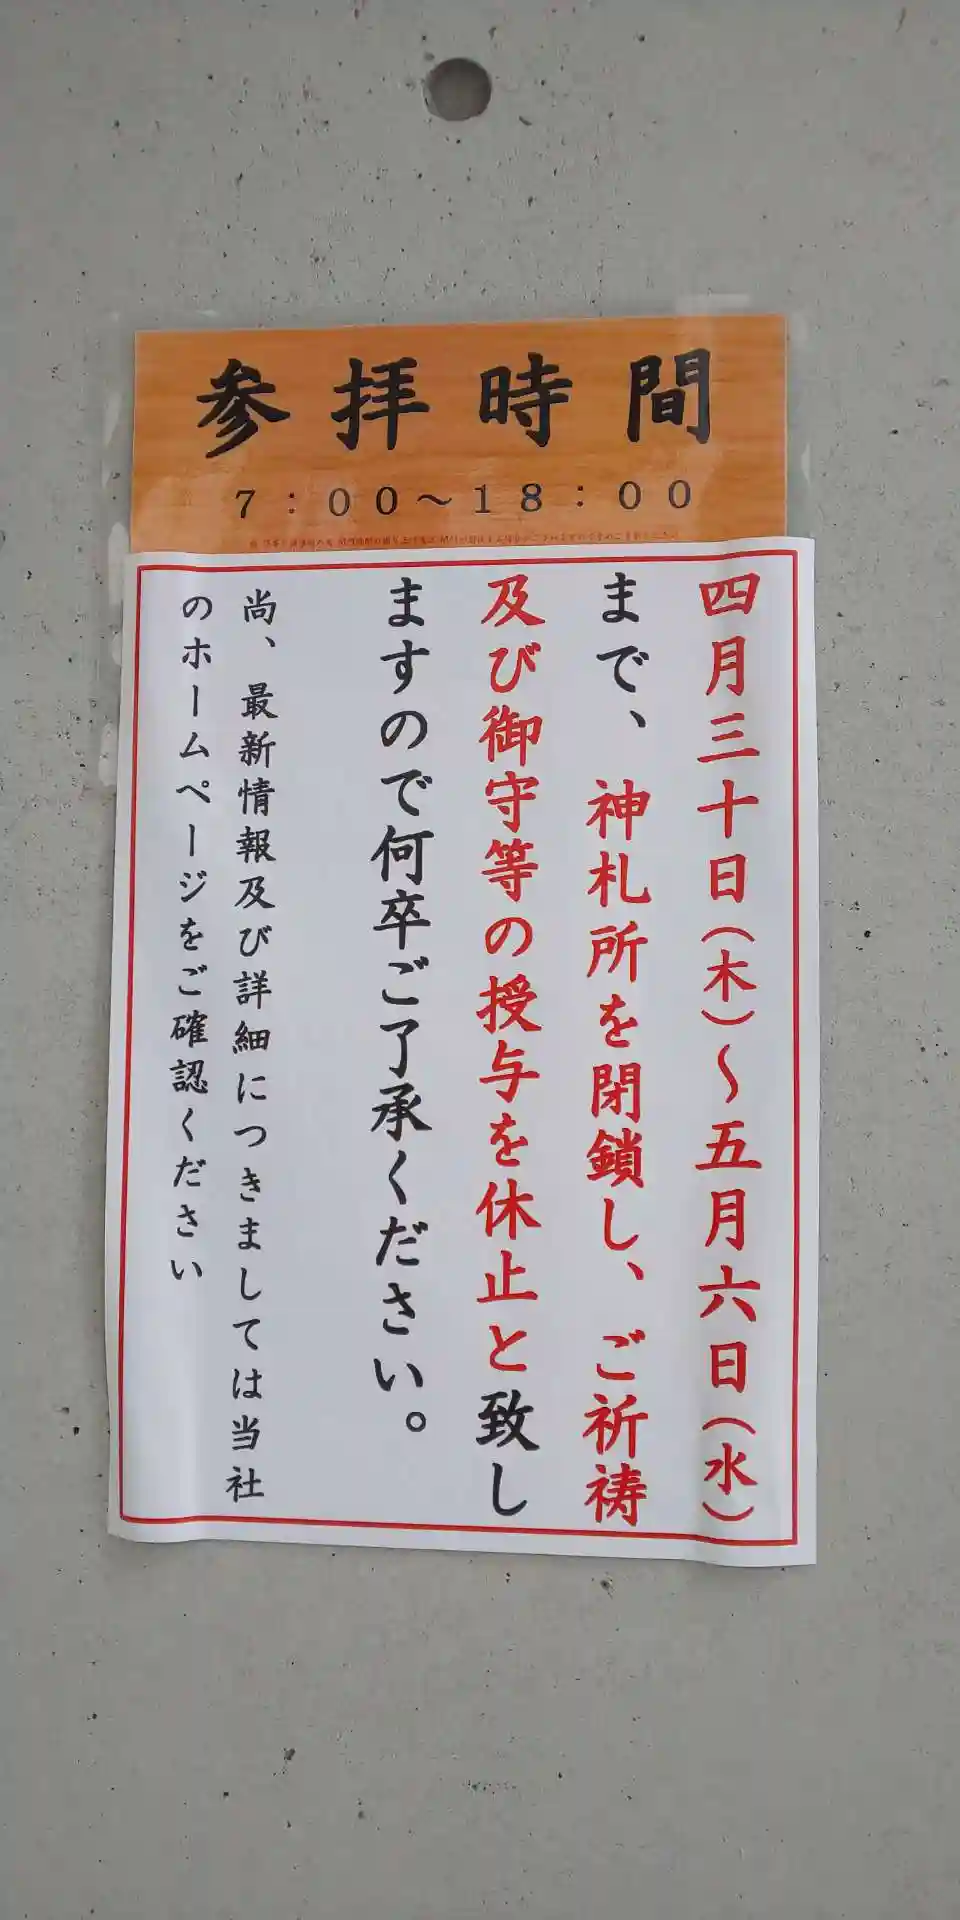 参拝時間
7：00～18：00
四月三十日（木）～五月六日（水）
まで、神札所を閉鎖し、ご祈祷
及び御守等の授与を休止と致し
ますので何卒ご了承ください。
尚、最新情報及び詳細につきましては当社
のホームページをご確認ください